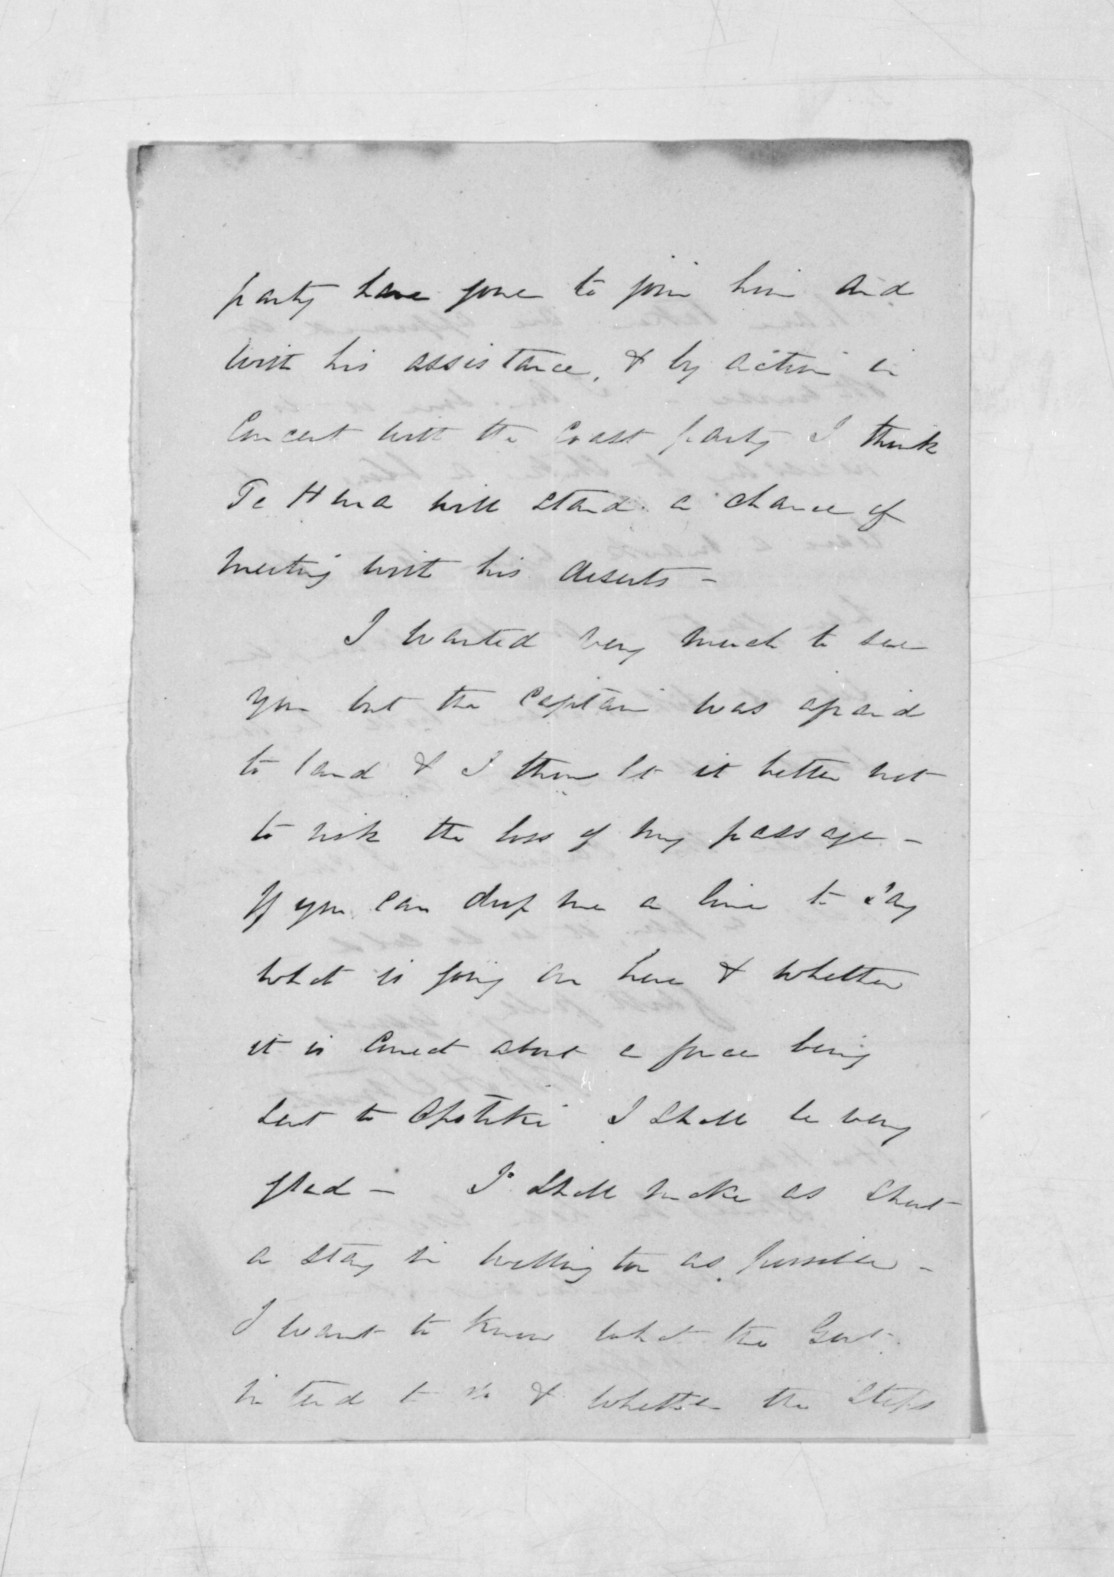 party have gone to join him and
with his assistance, & by action in
Concert with the Coast party I think
Te Hura will stand a chance of
meeting with his deserts -
I wanted very much to see
you but the Captain was afraid
to land & I thought it better not
to risk the loss of my passage -
If you can drop me a line to say
what is going on here & whether
it is Correct about a force being
sent to Opotiki I shall be very
glad - I shall make as short
a stay in Wellington as possible -
I want to know what the Govt.
intend to do & whether the steps